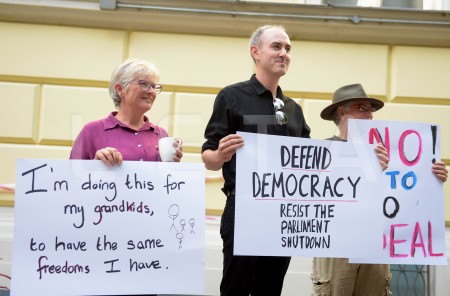 I'm doing this for
my grandkids,
to have the same
freedoms I have.
DEFEND
DEMOCRACY
RESIST THE
PARLIMENT
SHUTDOWN
NO!
TO
O
DEAL